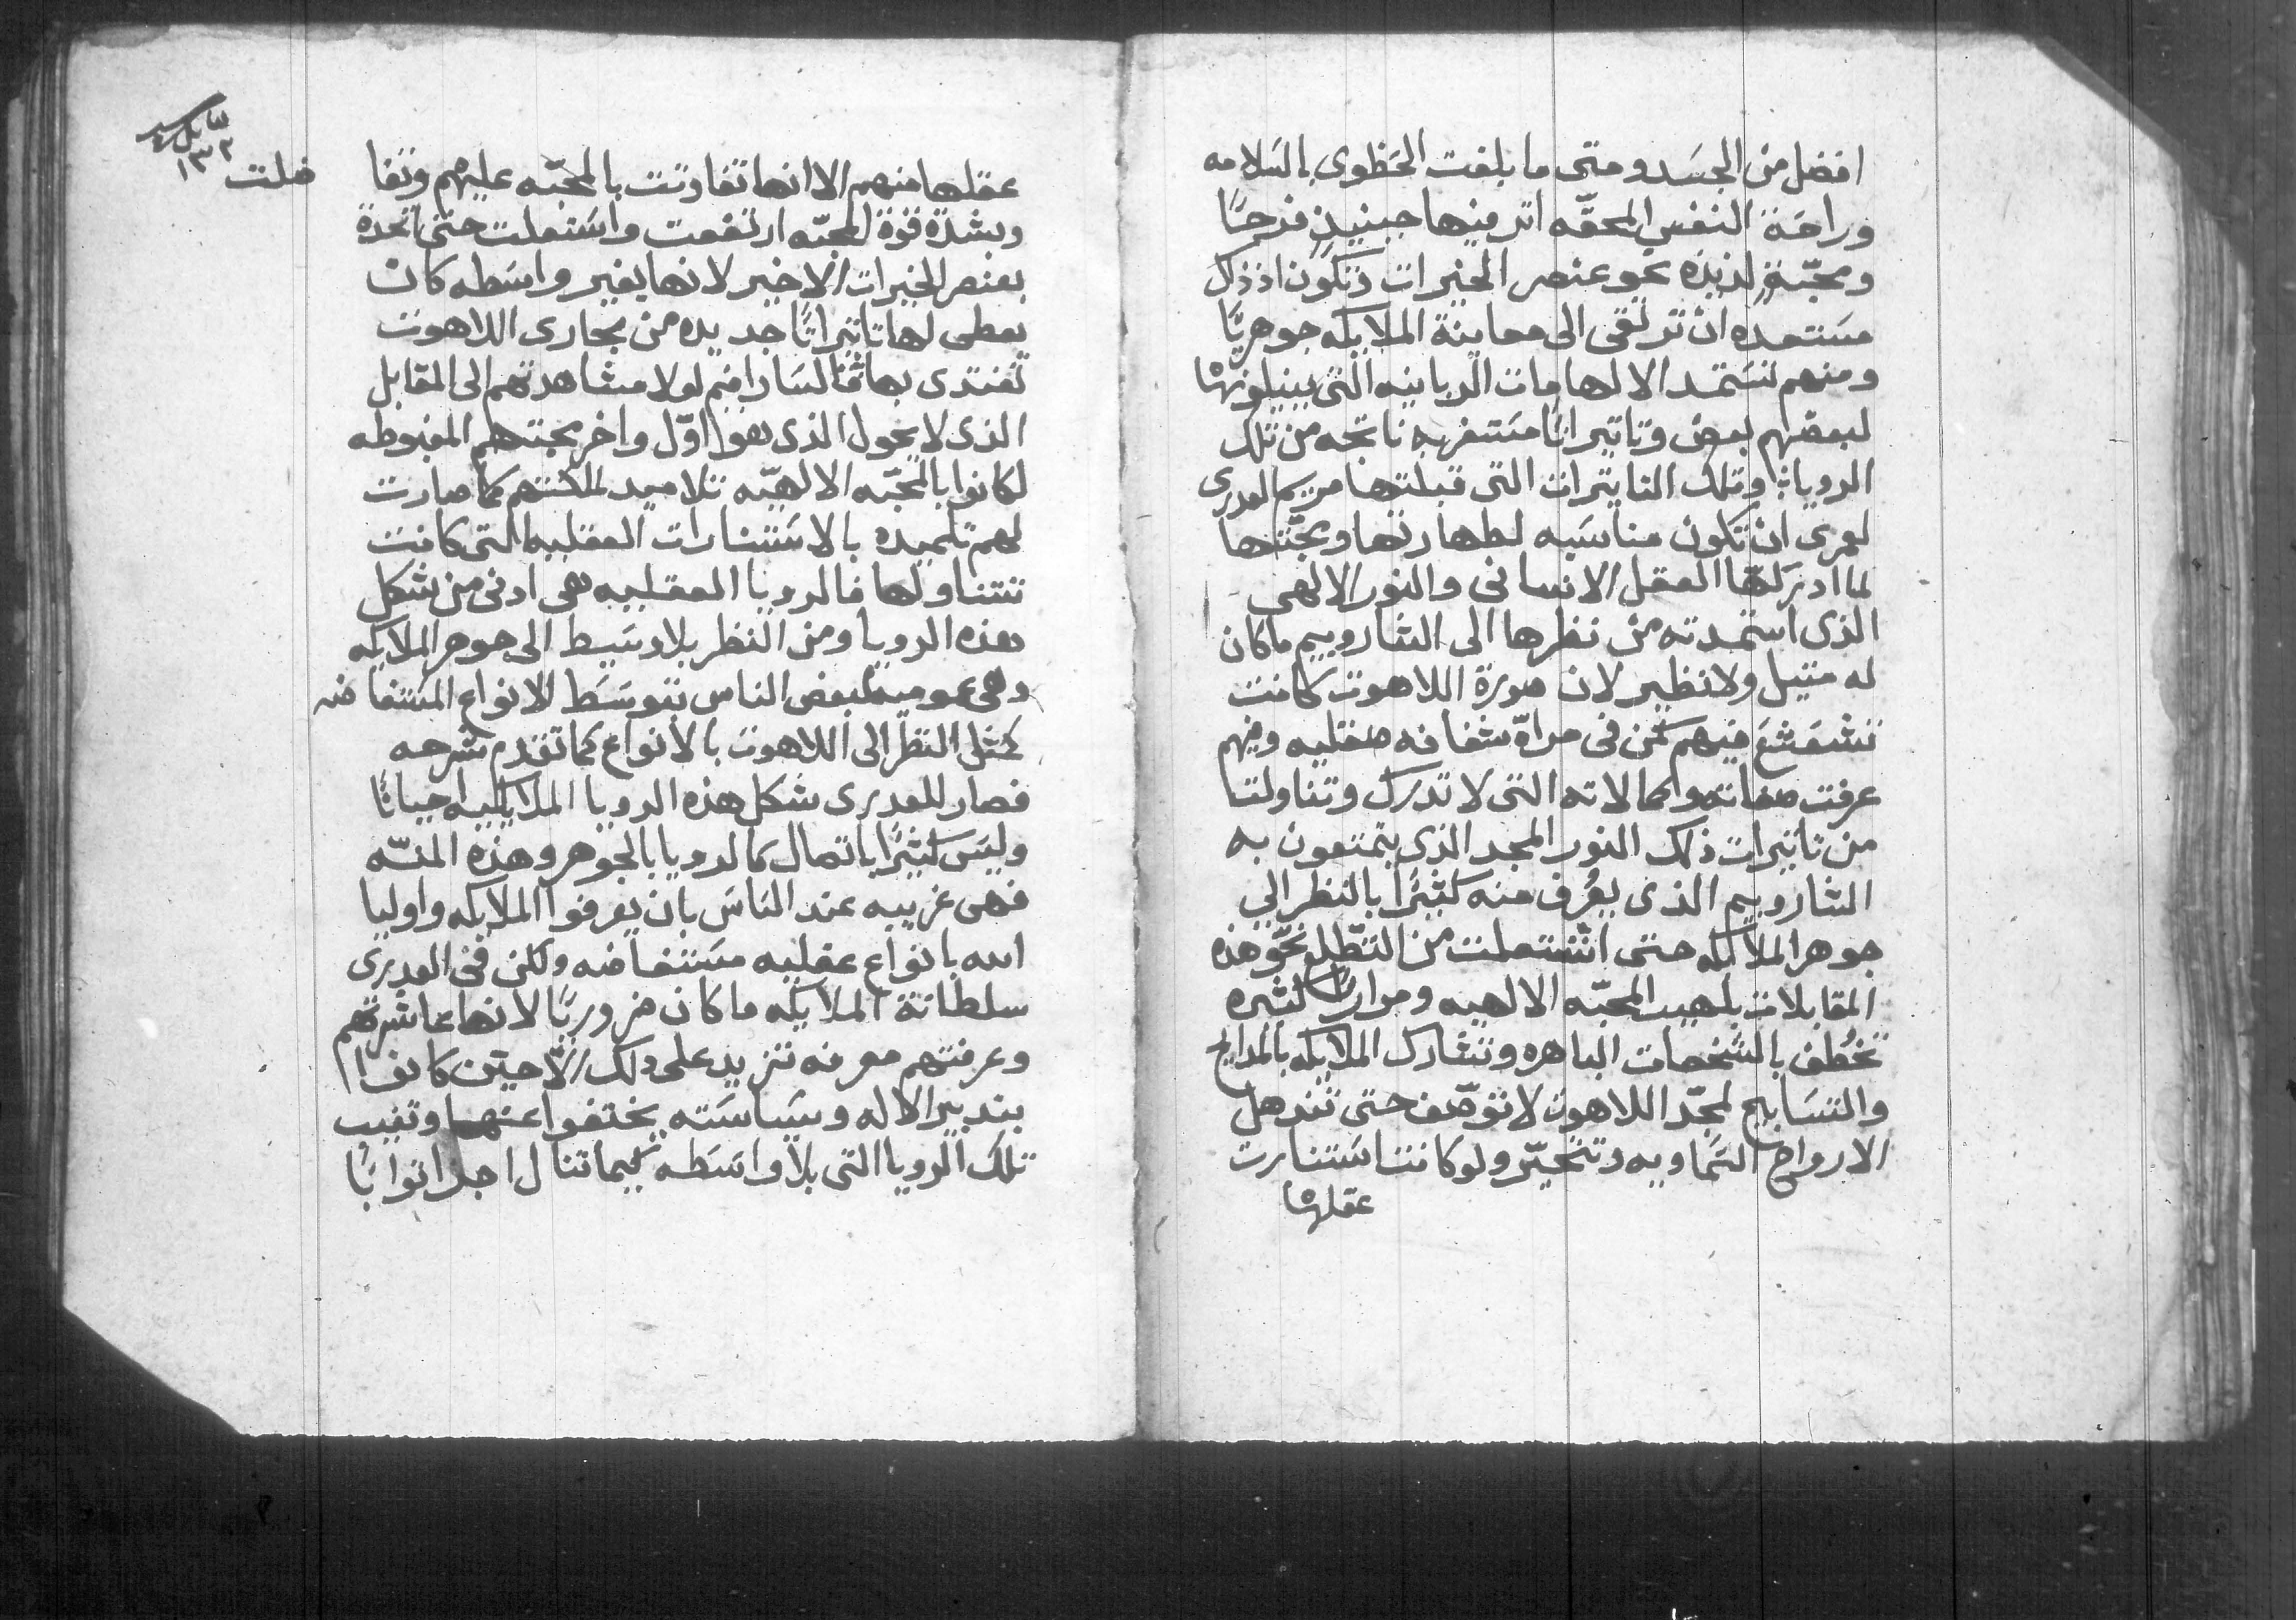 افضل من الجسد ومتى ما بلغت الحظوى بالسلامه
وراحة النفس المحقّه اثر فيها حينيذٍ فرحًا
ومحبّةٍ لذيذه نحو عنصر الخيرات وتكون اذ ذاك
مستعده ان ترتقى الى معاينة الملايكه جوهريًا
ومنهم تستمد الالهامات الربانيه التى يبيلونها
لبعضهم بعض وتاثيراتًا مستغربه ناتجه من تلك
الرويا وتلك التاثيرات التى قبلتها مريم العدرى
لعمرى ان تكون مناسبه لطهارتها ومحبّتها
لما ادركها العقل الانسانى والنور الالهى
الذى استمدته من نظرها الى الشاروبيم ما كان
له مثيل ولا نظير لان صورة اللاهوت كانت
تشعشع فيهم كمن فى مراةٍ شفافه صقليه وفيهم
عرفت صفاته وكمالاته التى لا تدرك وتناولت
من تاثيرات ذلك النور المجد الذى يتمتعون به
الشاروبيم الذى يعُرف منه كثيرًا بالنظر الي
جوهر الملايكه حتى اشتعلت من التطّلع نحو هذه
المقابلات بلهيب المحبّه الالهيه ومرارًا كثيره
تخُطف بالشخصات الباهره وتشارك الملايكه بالمدايح
والتسابيح لمجد اللاهوت لا توصّف حتى تندهل
الارواح السماويه وتتحيّر ولو كانت استنارت
عقلها
عقلها منهم الا انها تفاوتت بالمحبّه عليهم وتفا ضلت
وبشدة قوة المحبّه ارتفعت واشتعلت حتى اتحدة
بعنصر الخيرات الاخير لانها بغير واسطه كان
يعطى لها تاثيراتًا جديده من مجارى اللاهوت
تغتدى بها فالسارافيم لولا مشاهدتهم الى المقابل
الذى لا يحول الذى هو اوّل واخر محبتهم المغبوطه
لكانوا بالمحبّه الالهيّه تلاميد لملكتهم كما صارت
لهم تلميده بالاستنارات العقليه التى كانت
تتناولها فالرويا العقلييه هى ادنى من شكل
هذه الرويا ومن النظر بلا وسيط الى جوهر الملايكه
وهى عموميه لبعض الناس بتوسط الانواع المستفاضه
كمثل النظر الى اللاهوت بالانواع كما تقدم شرحه
فصار للعدرى شكل هذه الرويا الملايكيه احيانًا
وليس كثيرًا باتصال كالرويا بالجوهر وهذه المنّه
فهى غريبه عند الناس بان يعرفوا الملايكه واوليا
الله بانواع عقليه مستفاضه ولكن فى العدرى
سلطانة الملايكه ما كان ضروريًا لانها عاشرتهم
وعرفتهم معرفه تزيد على ذلك الّا حين كانوا
بتدبير الاله وسياسته يختفوا عنها وتغيب
تلك الرويا التى بلا واسطه كيما تنال اجلّ اثوابًا
١٣٢